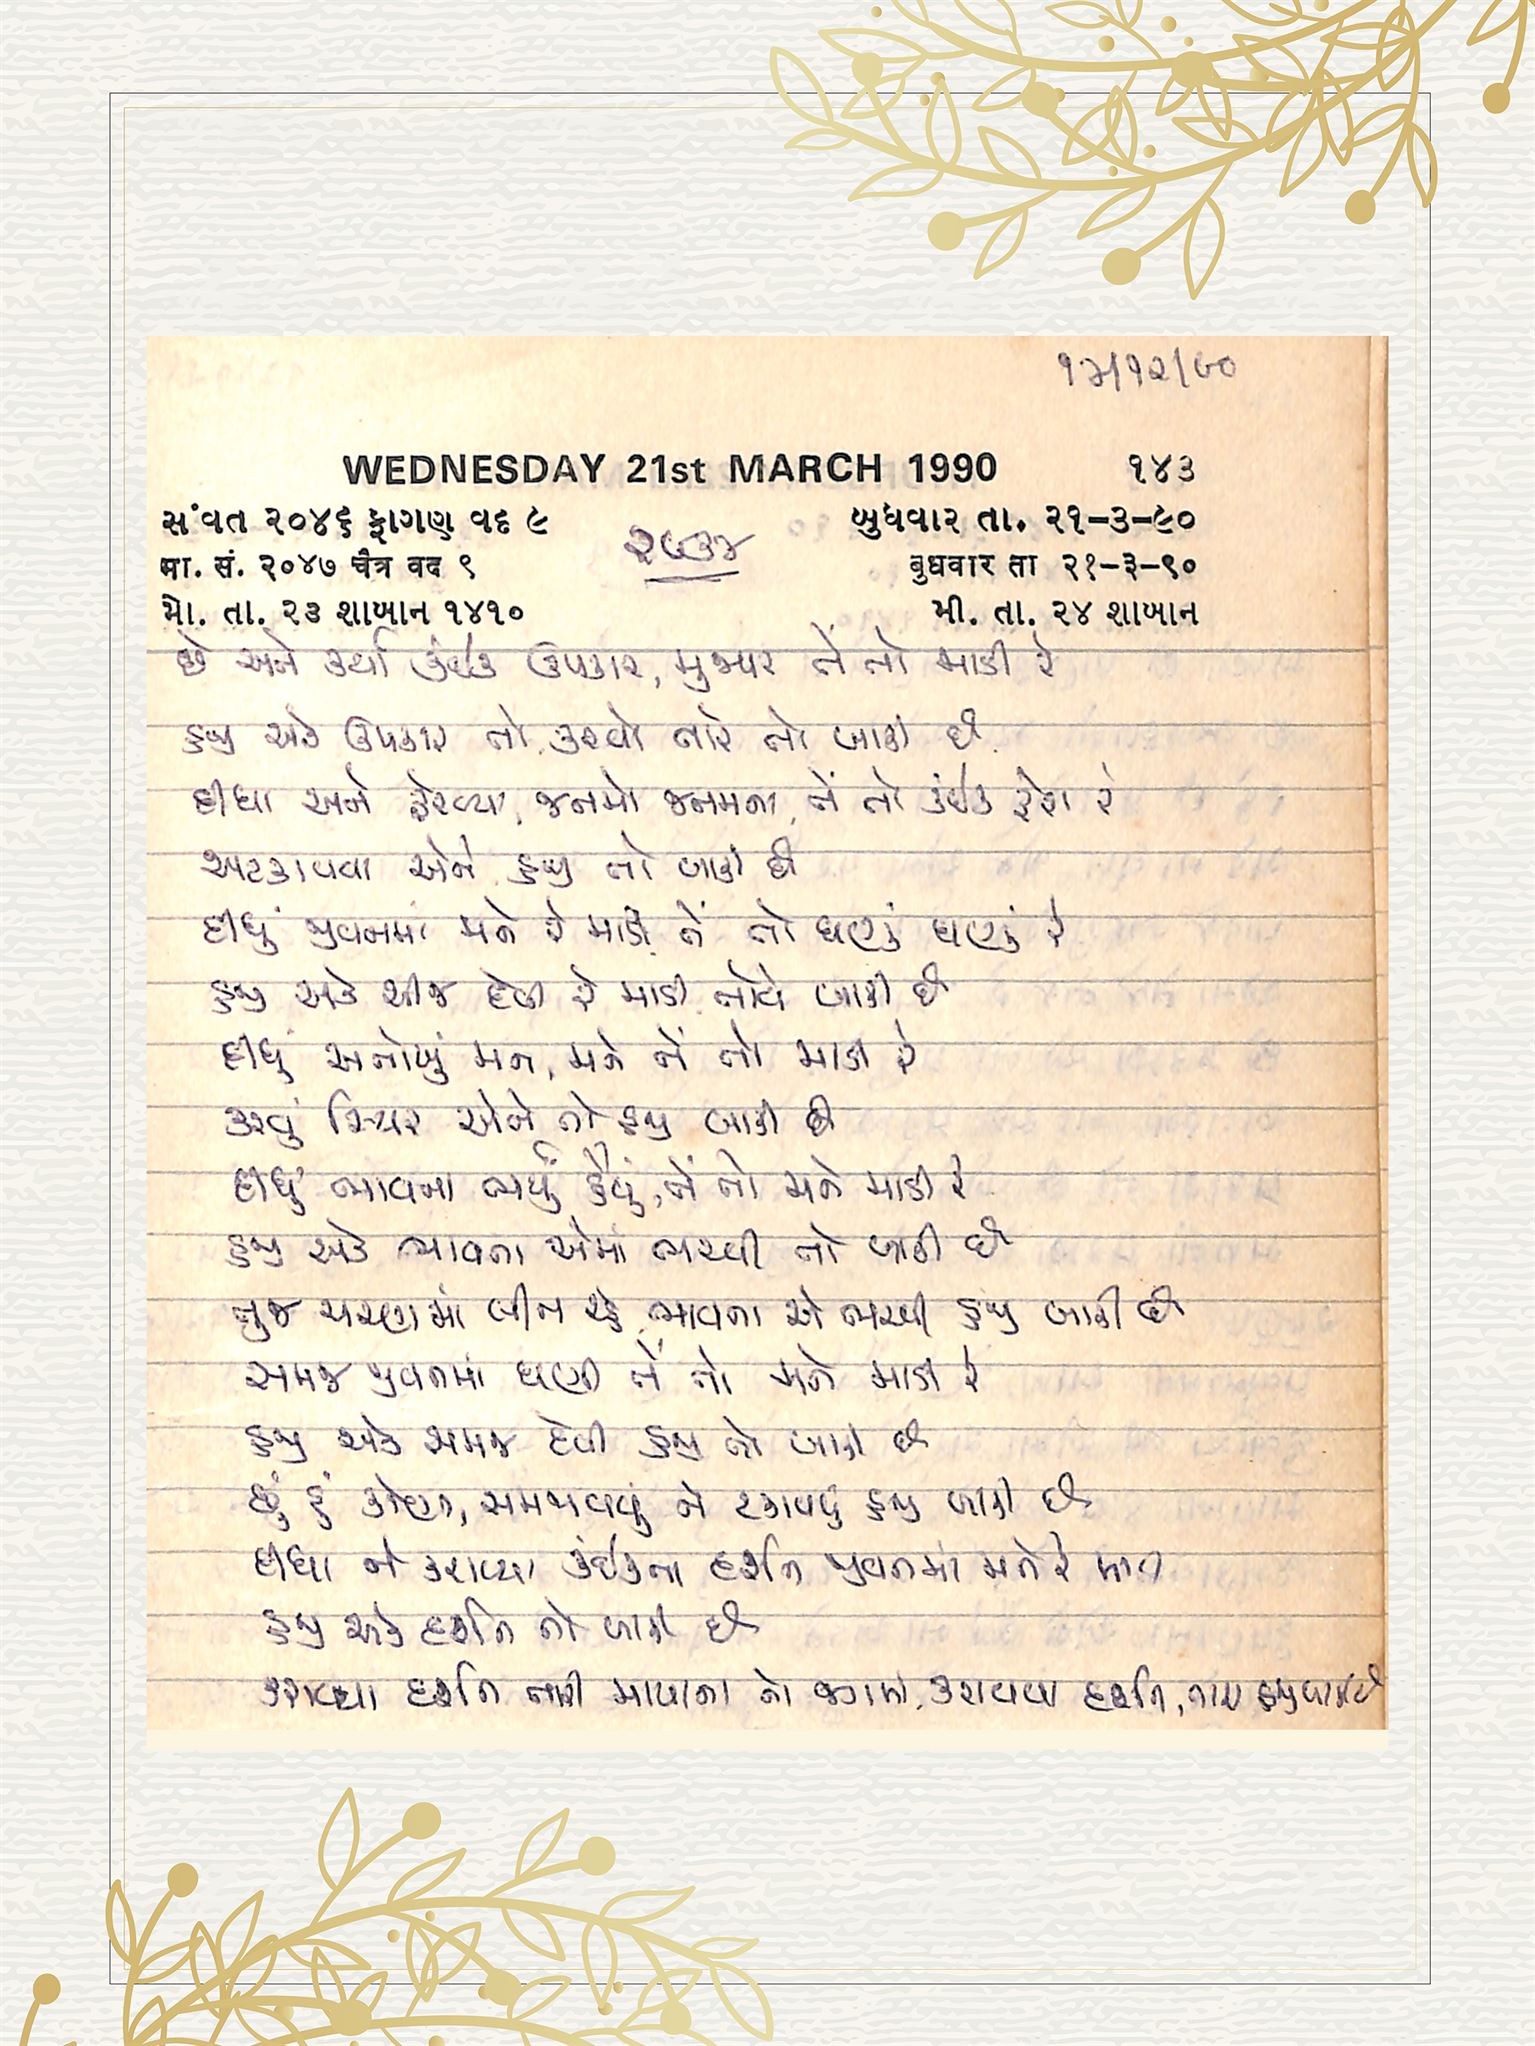 ૧૩/૧૨/૯૦
WEDNESDAY 21st MARCH 1990 ૧૪૩
સંવત ૨૦૪૬ ફાગણ વદ ૯ બુધવાર તા. ૨૧-૩-૯૦
મા. સં. ૨૦૪૭ ચૈત્ર વદ ૯ बुधवार ता २१-३-९०
મો. તા. ૨૩ શાબાન ૧૪૧૦ મી. તા. ૨૪ શાબાન
છે અને કર્યા કંઈક ઉપકાર, મુજપર તેં તો માડી રે
હજી એક ઉપકાર તો કરવો તારે તો બાકી છે
દીધા અને ફેરવ્યા, જનમો જનમના, તેં તો કંઈક ફેરા રે
અટકાવવા એને હજી તો બાકી છે
દીધું જીવનમાં મને રે માડી તેં તો ઘણું ઘણું રે
હજી એક ચીજ દેવી રે માડી તોયે બાકી છે
દીધું અનોખું મન, મને તેં તો માડી રે
કરવું સ્થિર એને તો હજી બાકી છે
દીધું ભાવના ભર્યું હૈયું, તેં તો મને માડી રે
હજી એક ભાવના એમાં ભરવી તો બાકી છે
તુજ ચરણમાં લીન રહે ભાવના એ ભરવી હજી બાકી છે
સમજ જીવનમાં ઘણી તેં તો મને માડી રે
હજી એક સમજ દેવી હજી તો બાકી છે
છું હું કોણ, સમજાવવું ને ટકાવવું હજી બાકી છે
દીધા ને કરાવ્યા કંઈકના દર્શન જીવનમાં મને રે માડી
હજી એક દર્શન તો બાકી છે
કરાવ્યા દર્શન તારી માયાના તો જગમાં, કરાવવા દર્શન, તારા હજી બાકી છે